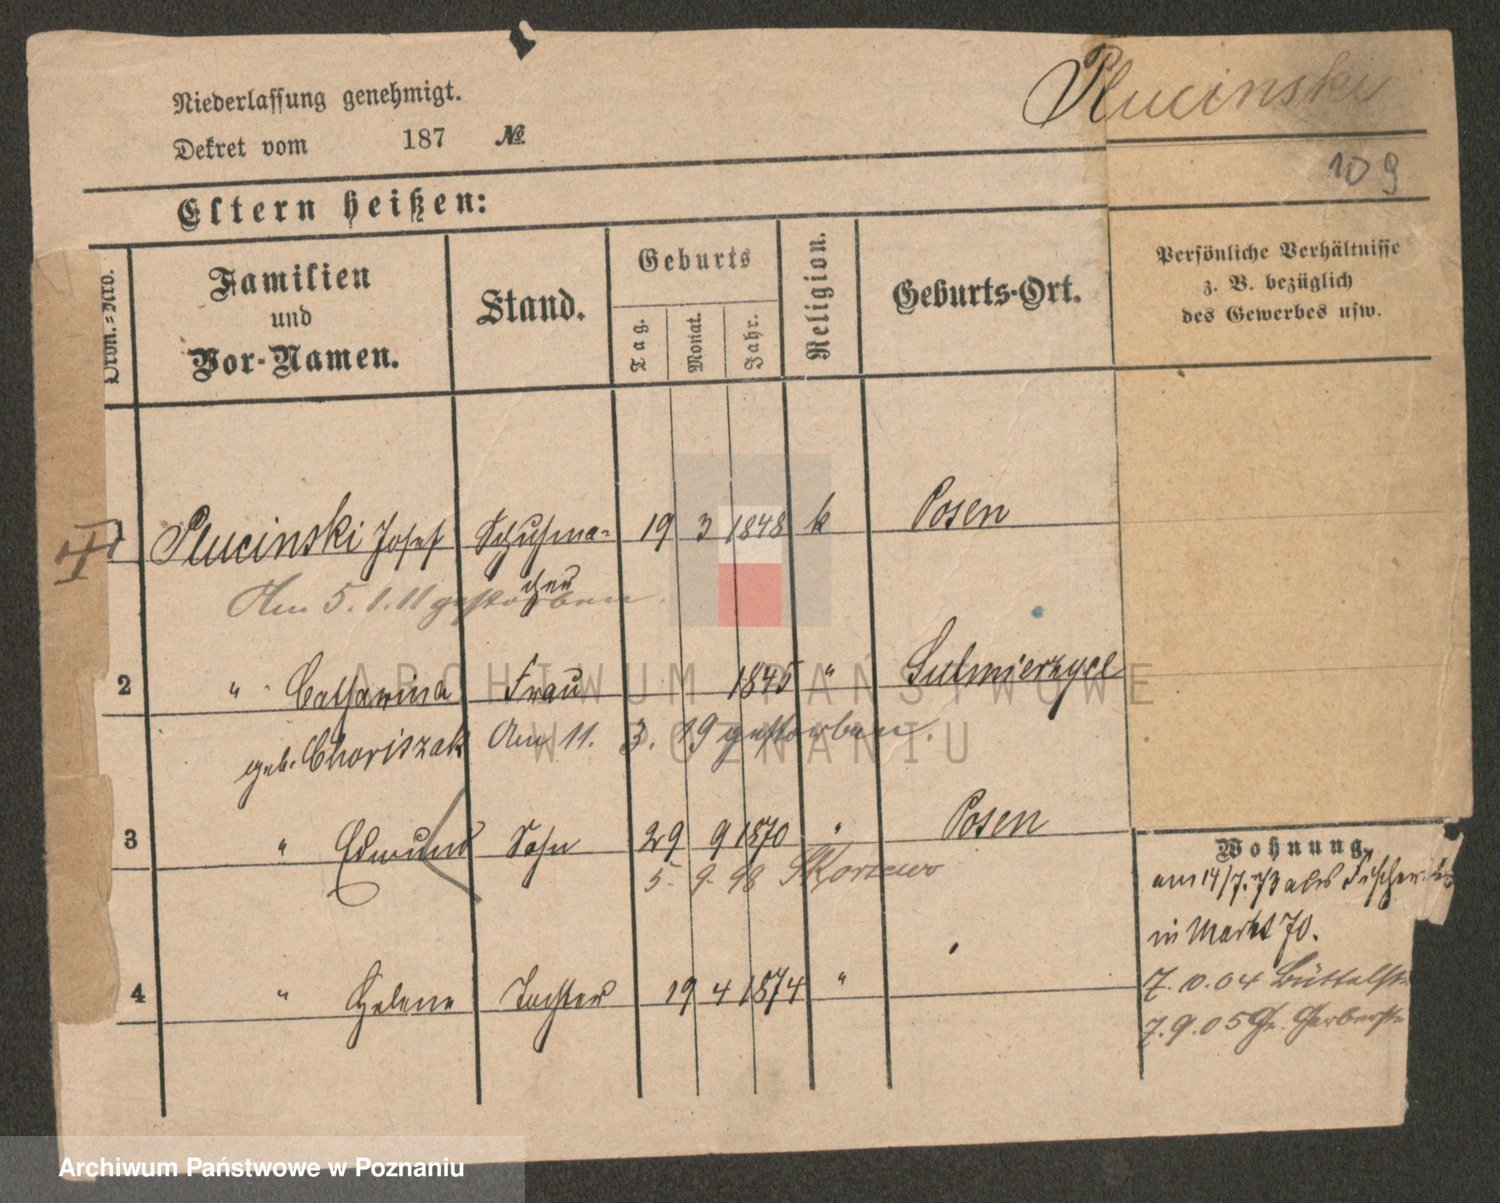 Niederlassung genehmigt.
Dekret vom 187 №
Plucinski
109
Eltern heißen:
Ordn.-Nro.
Familien
und
Vor-Namen.
Stand.
Geburts
Tag.
Monat.
Jahr.
Religion.
Geburts-Ort.
Persönliche Verhältnisse
z. B. bezüglich
des Gewerbes usw.
Plucinski Josef Schuhma= 19 3 1848 k Posen
cher
Am 5. 1. 11 gestorben.
2 " Catharina Frau 1845 " Sulmierzyce
geb. Choriszak Am 11. 3. 19 gestorben.
3 " Edmund Sohn 29 9 1870 " Posen
5. 9. 98 Skorzewo
4 " Helene Tochter 19 4 1874 " "
Wohnung.
am 14/7. 73 als Fischer
in Markt 70.
7. 10. 04 Büttelstr.
7. 9. 05 Gr. Gerberstr.
ARCHIWUM PAŃSTWOWE
W POZNANIU
Archiwum Państwowe w Poznaniu